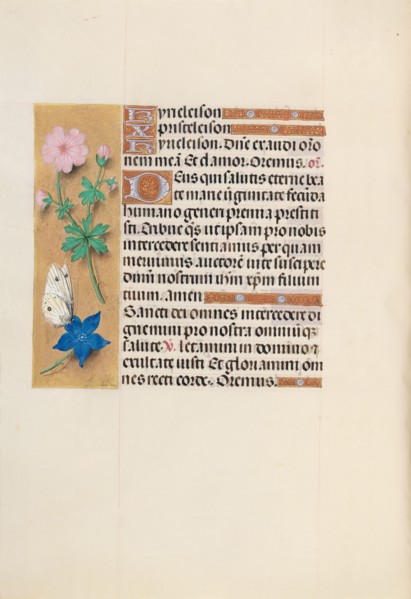 Kyrieleison
Xpristeleison
Kyrieleison. Dñe exaudi orõ
nem meã. Et clamor. Oremus. or̃.
Deus qui salutis eterne bea
te marie ṽginitate fecũda
humano generi premia prestiti
sti. Tribue q̃s ut ipsam pro nobis
intercedere sentiamus per quam
meruimus auctorẽ vite suscipere
dñm nostrum ihm xp̃m filium
tuum. Amen
Sancti dei omnes intercedere di
gnemini pro nostra omniũq̃
salute. V. letamini in domino et
exultate iusti. Et gloriamini om̃
nes recti corde. Oremus.